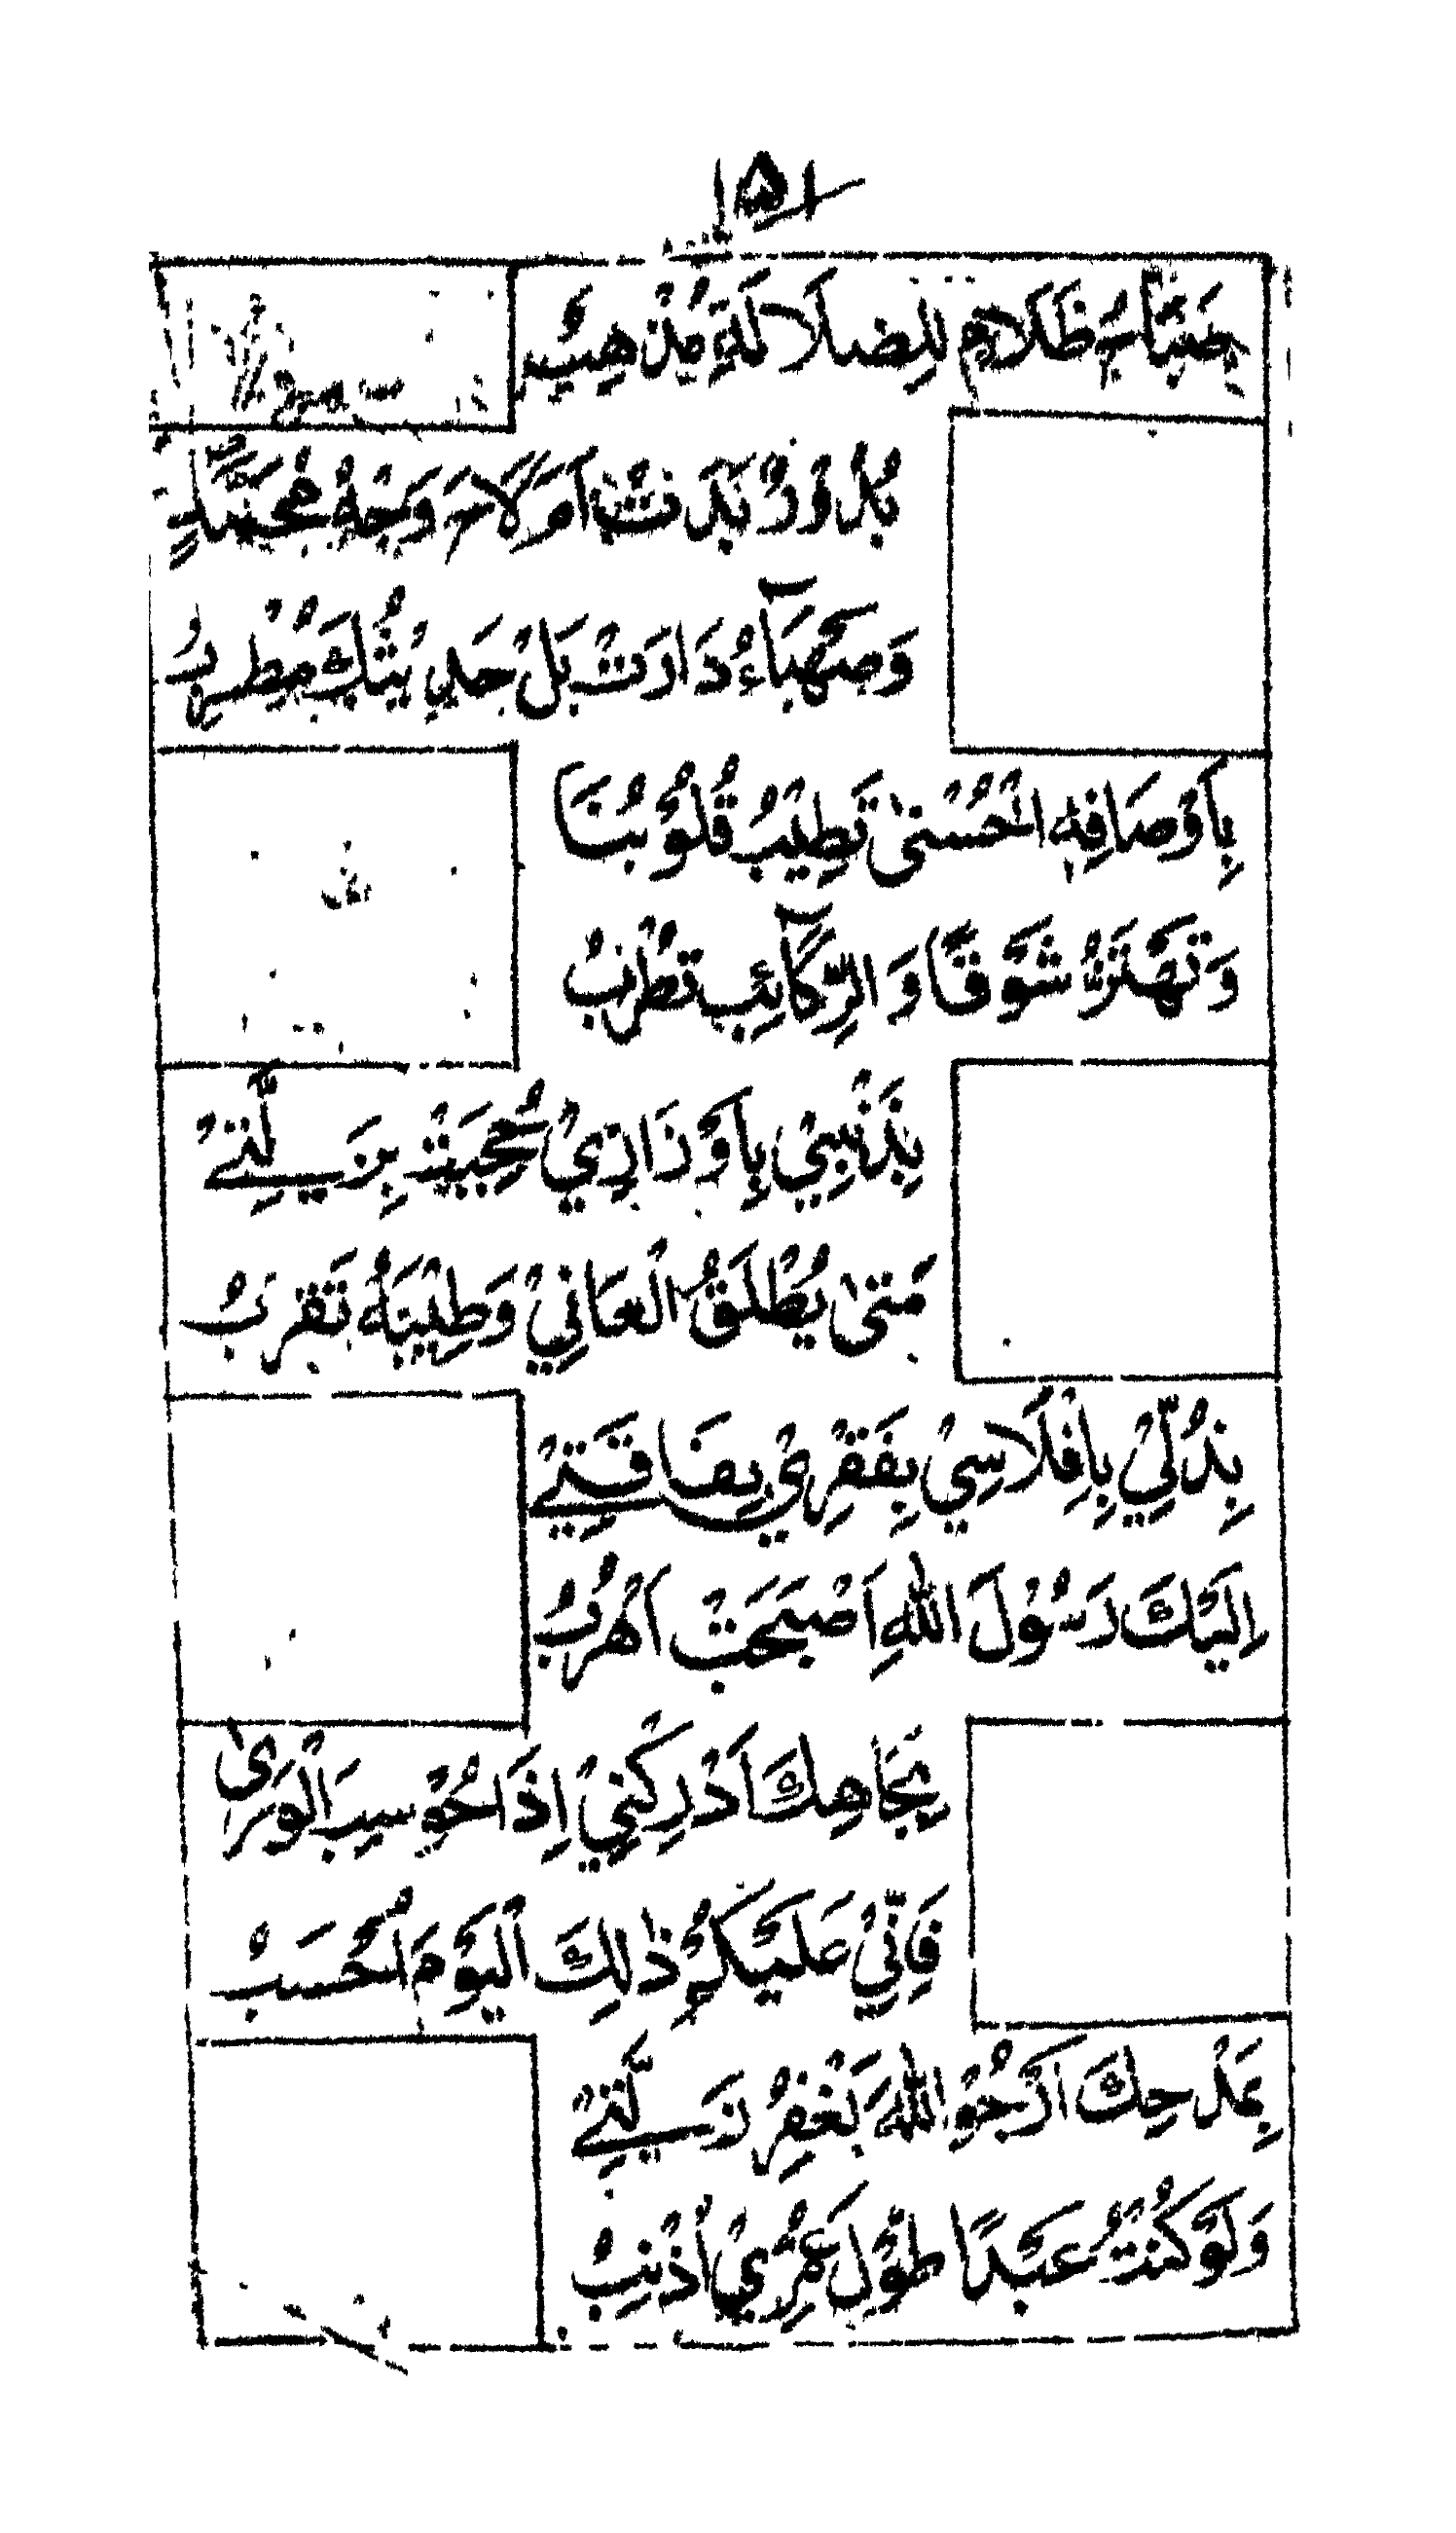 ١٥١
ضِيَاءُ ظَلَامٍ لِلضَّلَالَةِ مُذْهِبُ
بُدُوْرٌ بَدَتْ اَمْ لَاحَ وَجْهُ مُحَمَّدٍ
وَصَهْبَاءُ دَارَتْ بَلْ حَدِيْثُكَ مُطْرِبُ
بِاَوْصَافِهِ الْحُسْنٰى تَطِيْبُ قُلُوْبُنَا
وَتَهْتَزُّ شَوْقًا وَالرَّكَآئِبُ تَطْرَبُ
بِذَنْبِيْ بِاَوْزَارِيْ حُجِبْتُ بِزَلَّتِيْ
مَتٰى يُطْلَقُ الْعَانِيْ وَطِيْبَةُ تَقْرَبُ
بِذُلِّيْ بِاِفْلَاسِيْ بِفَقْرِيْ بِفَاقَتِيْ
اِلَيْكَ رَسُوْلَ اللهِ اَصْبَحْتُ اَهْرُبُ
بِجَاهِكَ اَدْرِكْنِيْ اِذَا حُوْسِبَ الْوَرٰى
فَاِنِّيْ عَلَيْكُمْ ذٰلِكَ الْيَوْمَ اُحْسَبُ
بِمَدْحِكَ اَرْجُو اللهَ يَغْفِرُ زَلَّتِيْ
وَلَوْ كُنْتُ عَبْدًا طُوْلَ عُمْرِيْ اُذْنِبُ